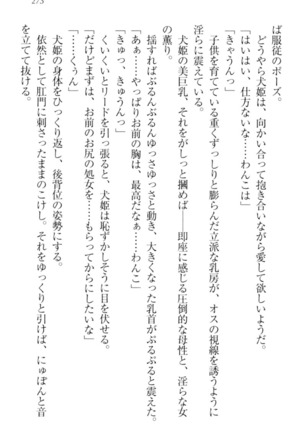 273
ば服従のポーズ。
どうやら犬姫は、向かい合って抱き合いながら愛して欲しいようだ。
「はいはい、仕方ないな……わんこは」
「きゃうんっ」
子供を育てている重くずっしりと膨らんだ立派な乳房が、オスの視線を誘うように
淫らに震えている。
犬姫の美巨乳、それをがしっと掴めば――即座に感じる圧倒的な母性と、淫らな女
の薫り。
揺すればぷるんぷるんゆっさゆっさと動き、大きくなった乳首がぷるぷると震える。
「きゅっ、きゅうんっ」
「だけどまずは、お前のお尻の処女を……もらってからにしたいな」
「……くぅん」
くいくいとリードを引っ張ると、犬姫は恥ずかしそうに目を伏せる。
犬姫の身体をひっくり返し、後背位の姿勢にする。
依然として肛門に刺さったままのこけし。それをゆっくりと引けば、にゅぽんと音
を立てて抜ける。
「……やっぱりお前の胸は、最高だなぁ……わんこ」